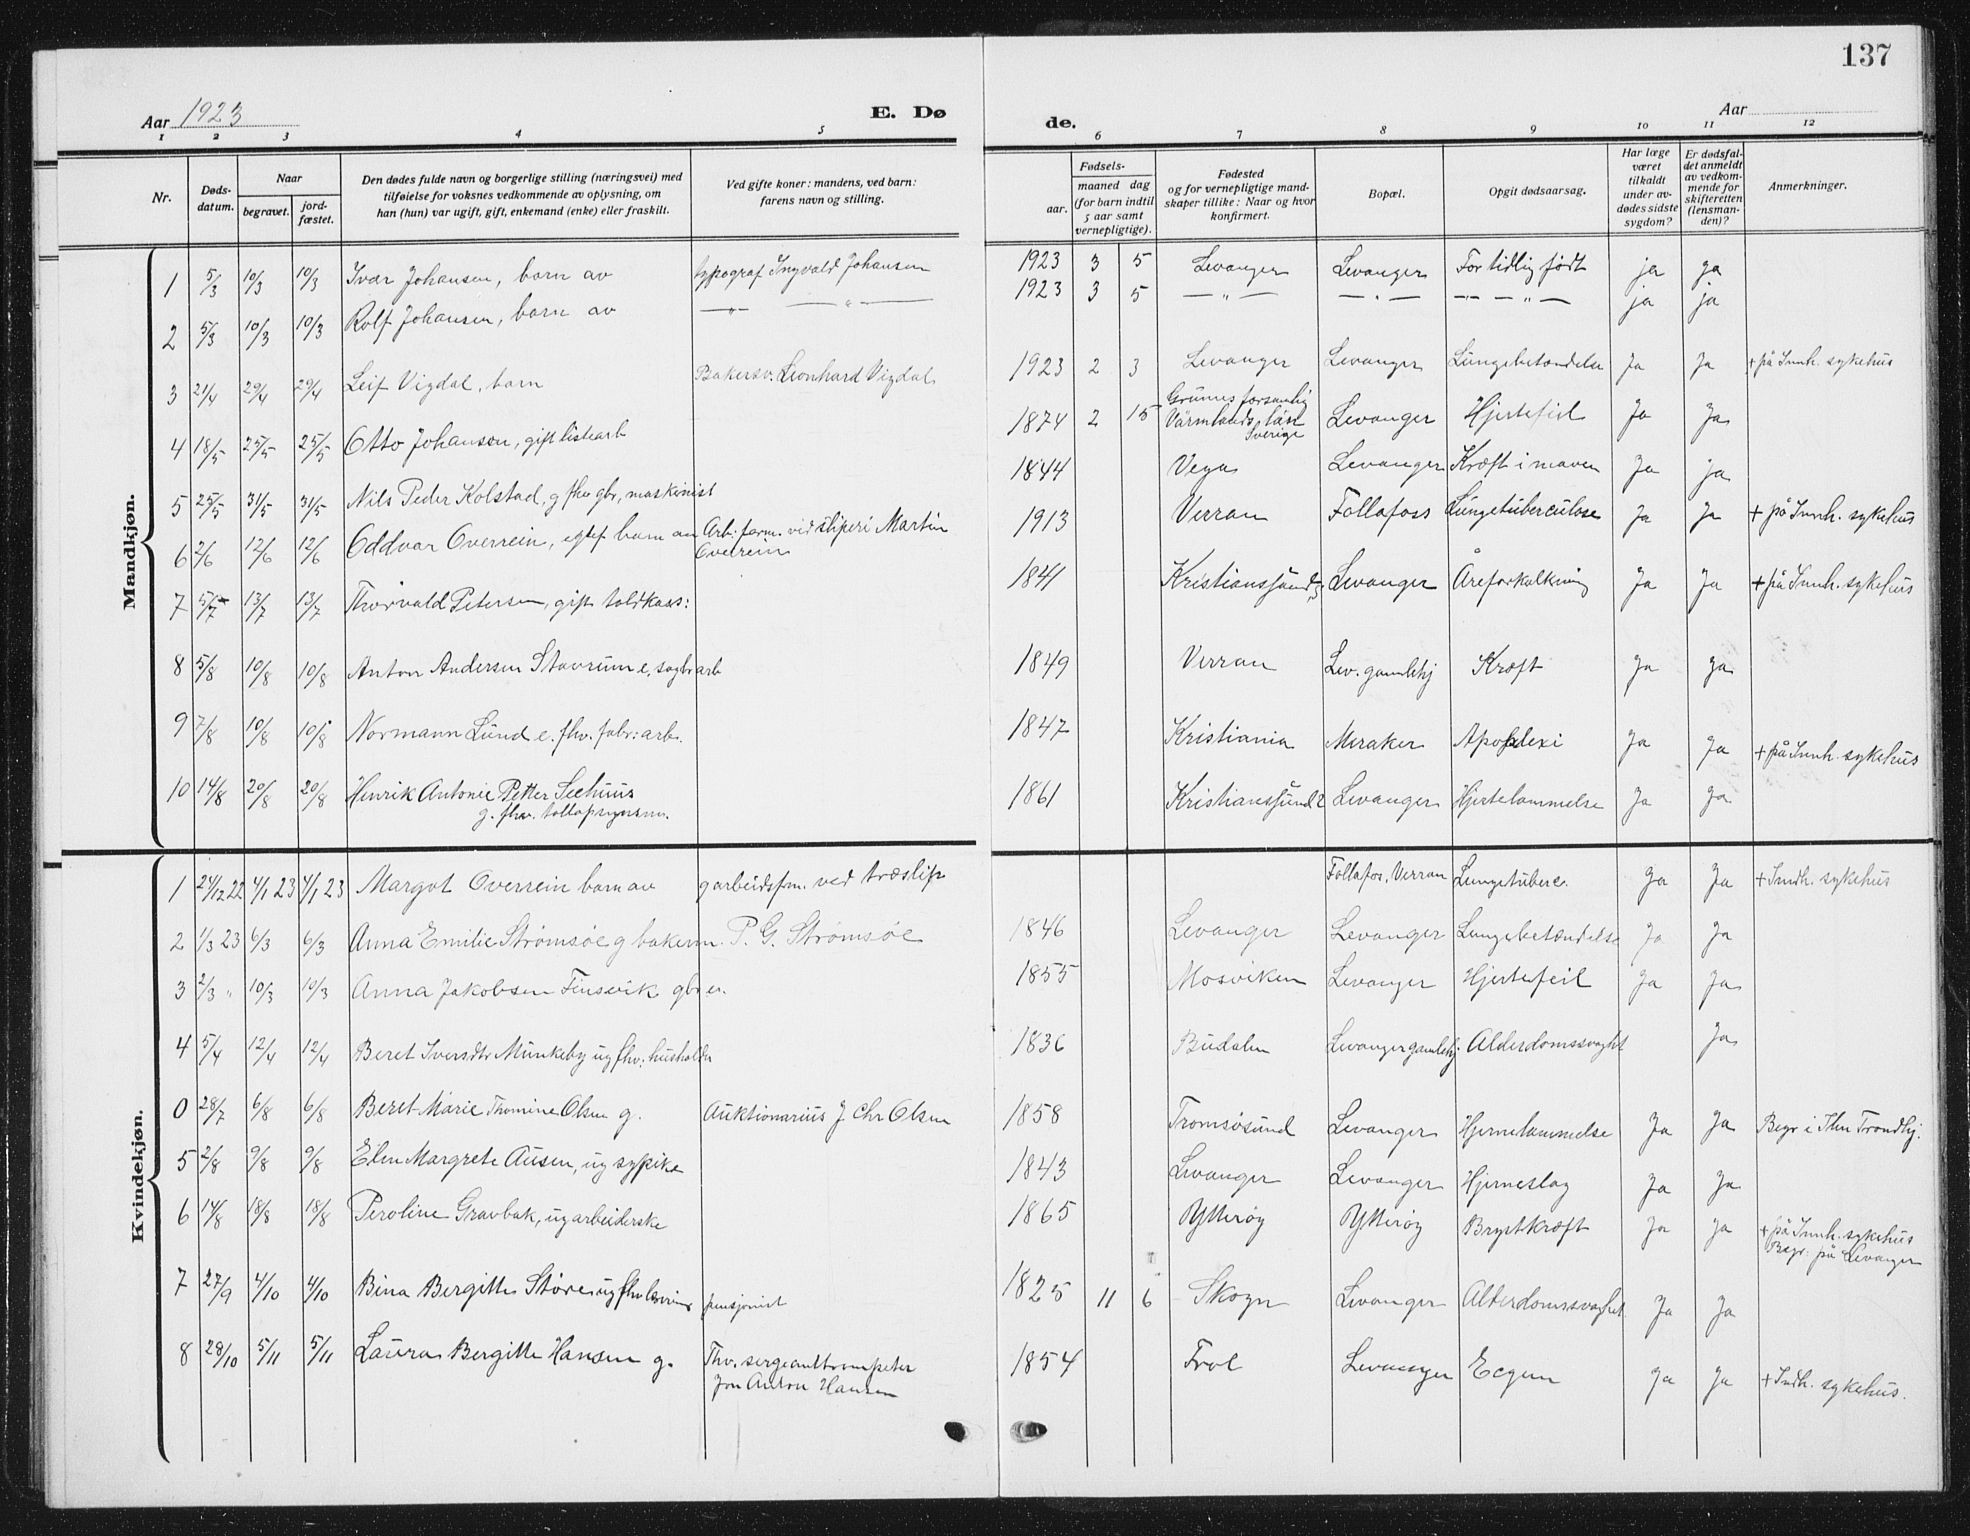 137
Aar 1923 E. Dø de. Aar
1 2 3 4 5 6 7 8 9 10 11 12
Nr.
Døds-
datum.
Naar
begravet.
jord-
fæstet.
Den dødes fulde navn og borgerlige stilling (næringsvei) med
tilføielse for voksnes vedkommende av oplysning, om
han (hun) var ugift, gift, enkemand (enke) eller fraskilt.
Ved gifte koner: mandens, ved barn:
farens navn og stilling.
Fødsels-
aar.
maaned dag
(for barn indtil
5 aar samt
vernepligtige).
Fødested
og for vernepligtige mand-
skaper tillike: Naar og hvor
konfirmert.
Bopæl.
Opgit dødsaarsag.
Har læge
været
tilkaldt
under av-
dødes sidste
sygdom?
Er dødsfal-
det anmeldt
av vedkom-
mende for
skifteretten
(lensman-
den)?
Anmerkninger.
Mandkjøn.
1 5/3 10/3 10/3 Ivar Johansen, barn av typograf Ingvald Johansen 1923 3 5 Levanger Levanger For tidlig født ja ja
2 5/3 10/3 10/3 Rolf Johansen, barn av — „ — — „ — 1923 3 5 — „ — — „ — — „ — ja ja
3 21/4 29/4 29/4 Leif Vigdal, barn Bakersv. Leonhard Vigdal 1923 2 3 Levanger Levanger Lungebetændelse Ja Ja + på Innh. sykehus
4 18/5 25/5 25/5 Otto Johansen, gift 1874 2 15 Grums forsamlig
Värmlands län
Sverige Levanger Hjertefeil Ja Ja
5 25/5 31/5 31/5 Nils Peder Kolstad, g fhv gbr, maskinist 1844 Vega Levanger Kræft i maven Ja ja
6 2/6 12/6 12/6 Oddvar Overrein, egtef barn av Arb. form. ved sliperi Martin
Overrein 1913 Verran Follafoss Lungetuberculose Ja Ja + på Innh. sykehus
7 5/7 13/7 13/7 Thorvald Petersen, gift toldkass: 1841 Kristianssund Levanger Åreforkalkning Ja Ja + på Innh. sykehus
8 5/8 10/8 10/8 Anton Andersen Stavrum e, sagbr arb 1849 Verran Lev. gamlehj Kræft Ja Ja
9 7/8 10/8 10/8 Normann Lund e. fhv. fabr: arb. 1847 Kristiania Meraker Apoplexi Ja Ja + på Innh. sykehus
10 14/8 20/8 20/8 Henrik Antonie Petter Seehuus
g. fhv. tollopsynsm. 1861 Kristianssund Levanger Hjertelammelse Ja Ja
Kvindekjøn.
1 24/12 22 4/1 23 4/1 23 Margot Overrein barn av g arbeidsfm. ved træslip Follafos, Verran Lungetuberc. Ja Ja + Indh. sykehus
2 1/3 23 6/3 6/3 Anna Emilie Strømsøe g bakerm. P. G. Strømsøe 1846 Levanger Levanger Lungebetændelse Ja Ja
3 2/3 „ 10/3 10/3 Anna Jakobsen Finsvik gbr e. 1855 Mosviken Levanger Hjertefeil Ja Ja
4 5/4 12/4 12/4 Beret Iversdtr Munkeby ug fhv. husholder 1836 Budalen Levanger gamlehj Alderdomssvaght Ja
0 28/7 6/8 6/8 Beret Marie Thomine Olsen g. Auktionarius J Chr Olsen 1858 Tromsøsund Levanger Hjernelammelse Ja Ja Begr i Ilen Trondhj.
5 2/8 9/8 9/8 Elen Margrete Ausen, ug sypike 1843 Levanger Levanger Hjerneslag Ja Ja
6 14/8 18/8 18/8 Peroline Gravbak, ug arbeiderske 1865 Ytterøy Ytterøy Brystkræft Ja Ja + på Innh. sykehus
Begr: på Levanger
7 27/9 4/10 4/10 Bina Bergitte Støre ug fhv pensjonist 1825 11 6 Skogn Levanger Alderdomssvaghet Ja Ja
8 28/10 5/11 5/11 Laura Bergitte Hansen g. Fhv. sergeanttrompeter
Jon Anton Hansen 1854 Frol Levanger Ja Ja + Indh. sykehus.